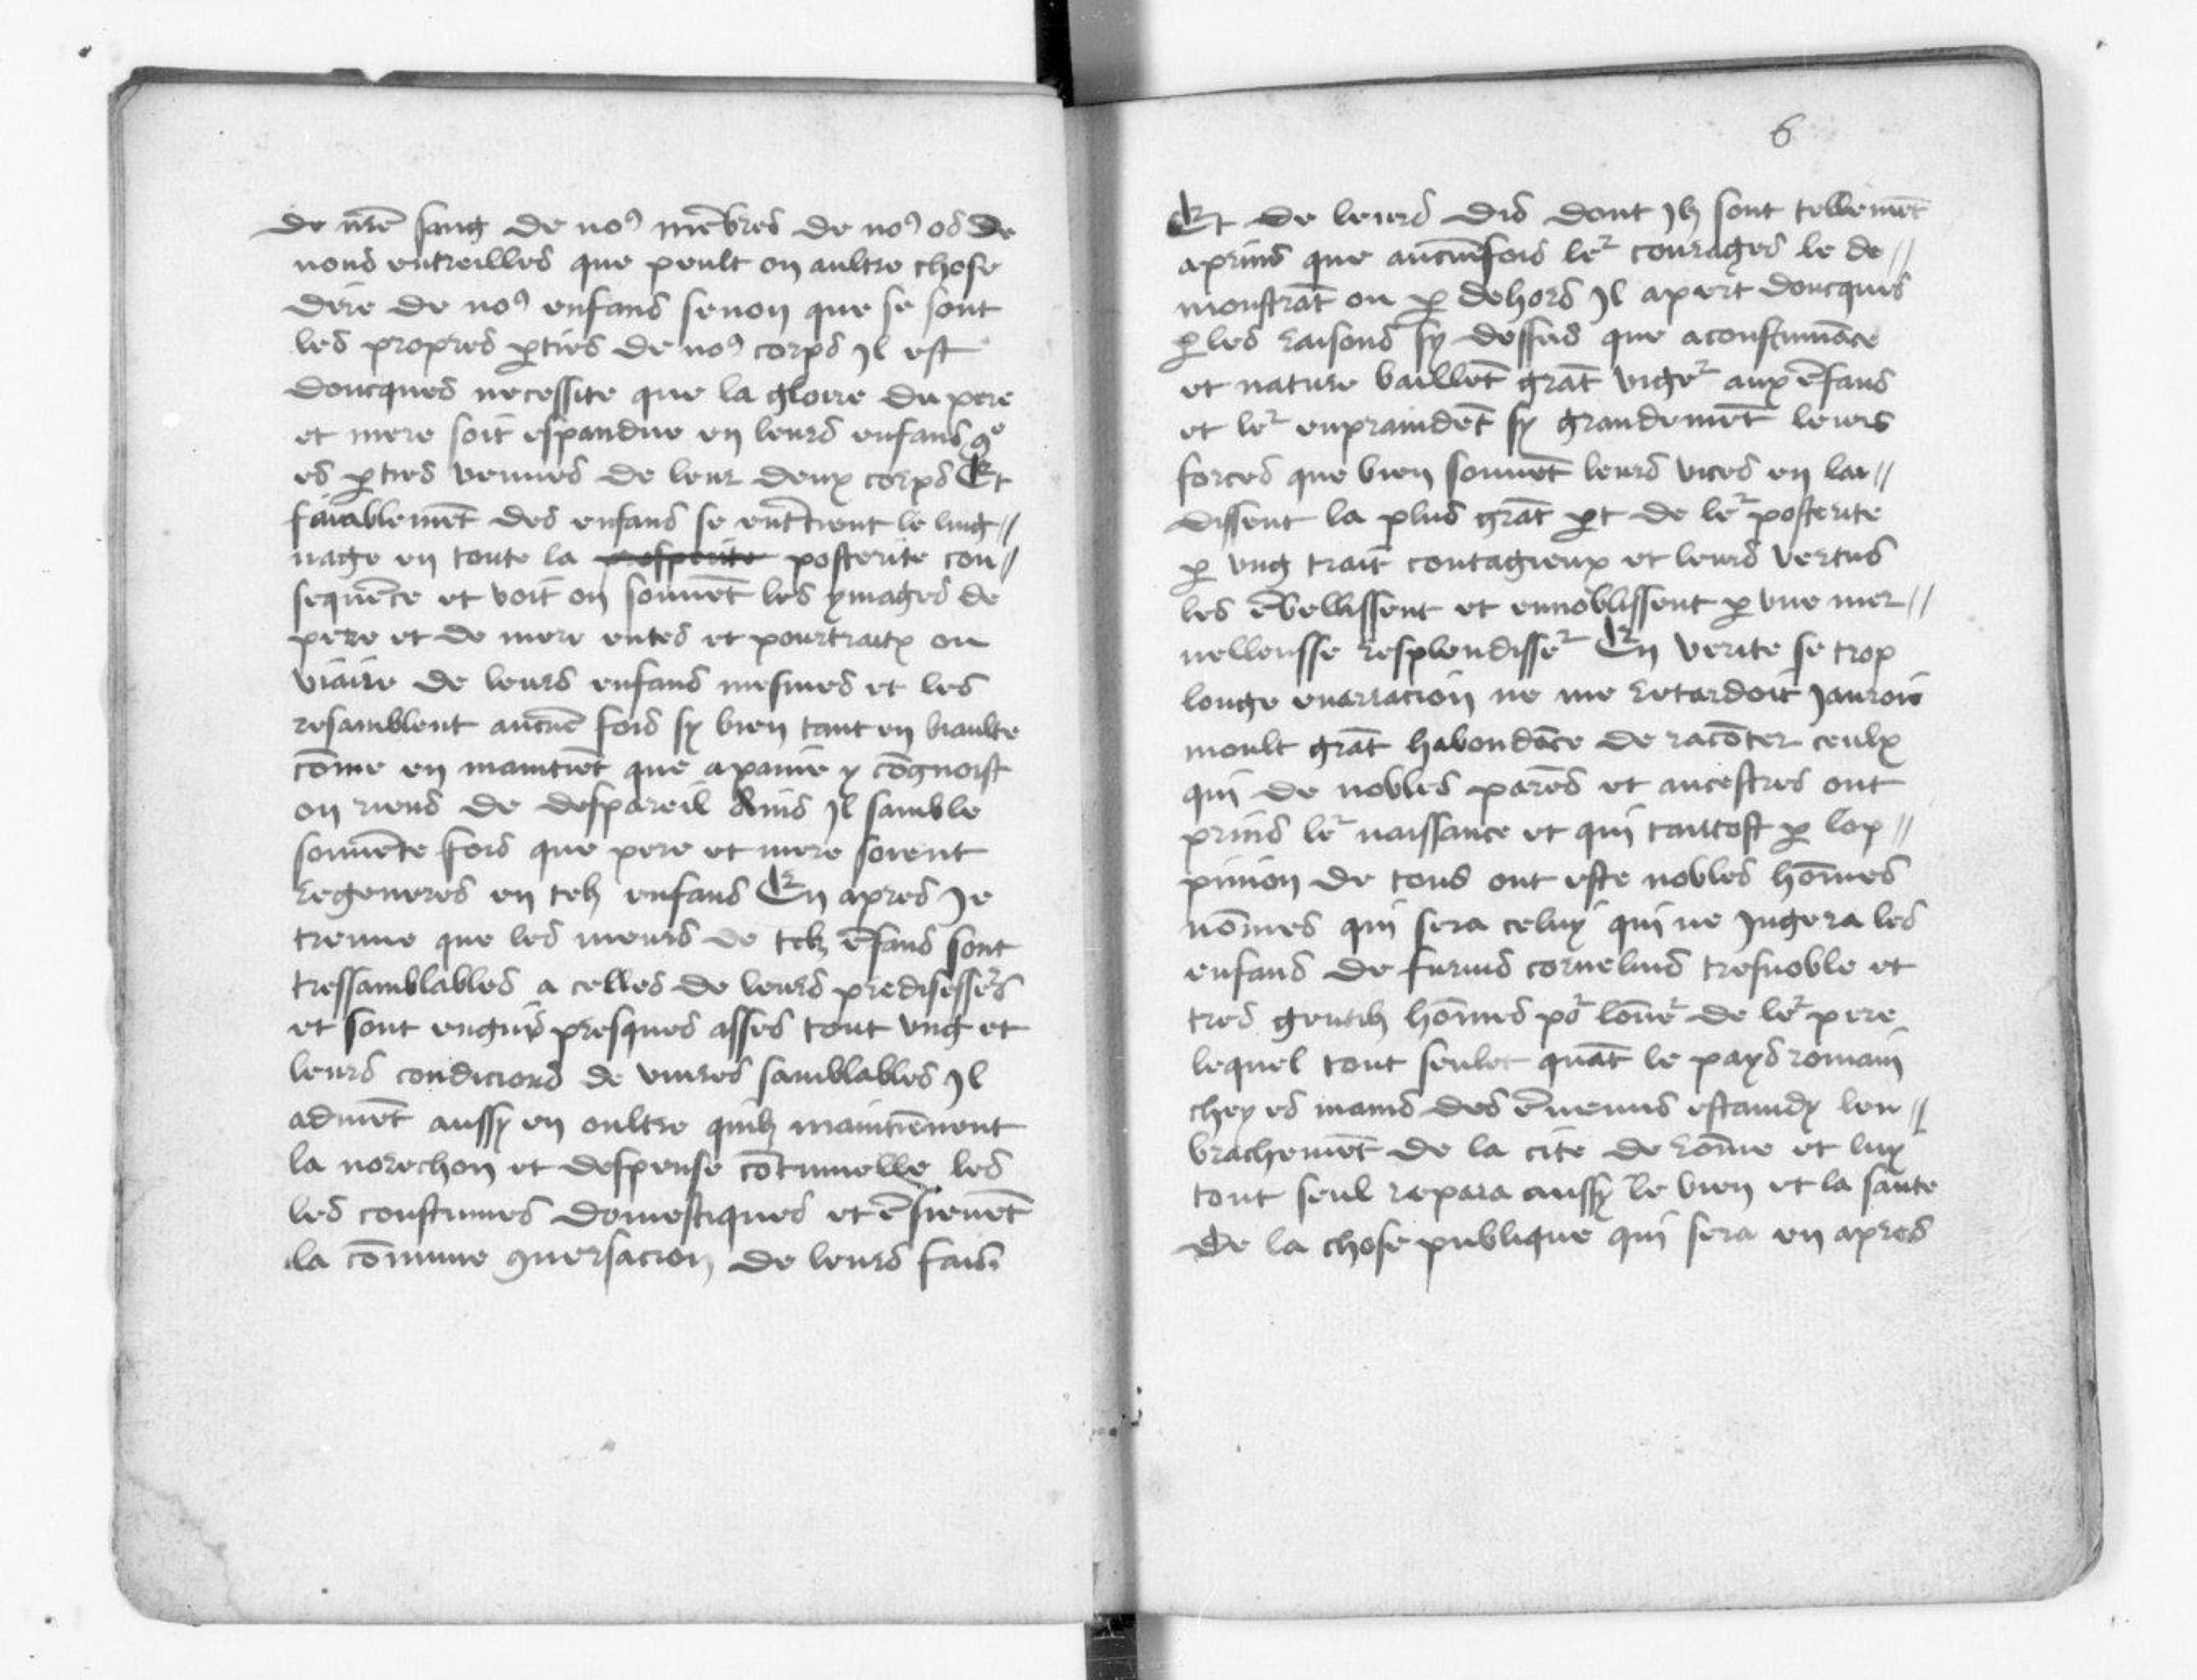 de nr̃e sang de noꝰ mẽbres de noꝰ os de
nous entreilles que peult on aultre chose
dire de noꝰ enfans senon que se sont
les propres ꝑties de noꝰ corps Jl est
doncques necessite que la gloire du pere
et mere soit espandue en leurs enfans ꝯe
es ꝑties venues de leur deux corps Et
des enfans se le ling //
nage en toute la posterite con //
sequẽce et voit on souuẽt les ymages de
pere et de mere entes et pourtraitz ou
viaire de leurs enfans mesmes et les
resamblent aucune fois sy bien tant en biaulte
cõme en maintiẽt que a paine y cõgnoist
on riens de despareil Ains Jl samble
souuẽte fois que pere et mere soient
regeneres en telz enfans En apres Je
treuue que les meurs de telz ẽfans sont
tressamblables a celles de leurs predisesseʳs
et sont presques asses tout ung et
leurs condicions de viures samblables Jl
aduiẽt aussy en oultre quilz maintiẽnent
la norechon et despense cõtinuelle les
les coustumes domestiques et ẽsieuuẽt
la cõmune ꝯuersacion de leurs fais
6
Et de leurs dis dont Jlz sont tellemẽt
aprins que aucunefois leʳ courages le de //
monstrãt ou ꝑ dehors Jl apert doncques
ꝑ les raisons sy dessus que acoustumãce
et nature baillẽt grãt vigeʳ aux ẽfans
et leʳ enpraindẽt sy grandemẽt leurs
forces que bien souuẽt leurs vices en lai //
dissent la plus grãt ꝑt de leʳ posterite
ꝑ ung trait contagieux et leurs vertus
les ẽbellissent et ennoblissent ꝑ une mer //
uelleusse resplendisseʳ En verite se trop
longe enarracion ne me retardoit Jaurois
moult grãt habondãce de racõter ceulx
qui de nobles parẽs et ancestres ont
prins leʳ naissance et qui tantost ꝑ lop //
pinion de tous ont este nobles hõmes
nõmes qui sera celuy qui ne Jugera les
enfans de furius cornelius tresnoble et
tres gentilz hõmes poʳ loueʳ de leʳ pere
lequel tout seulet quãt le pays romain
chey es mains des ẽnemis estaindy len //
brachemẽt de la cite de rõme et luy
tout seul repara aussy le bien et la sante
de la chose publique qui sera en apres